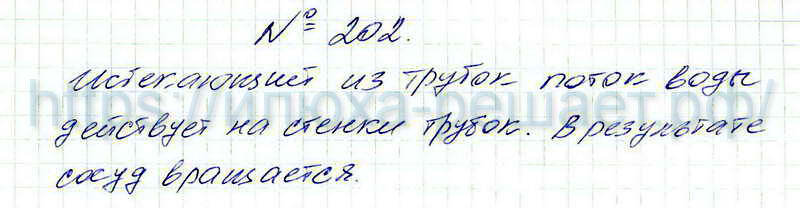 № 202.
Истекающий из трубок поток воды
https://илюха-решает.рф/
действует на стенки трубок. В результате
сосуд вращается.